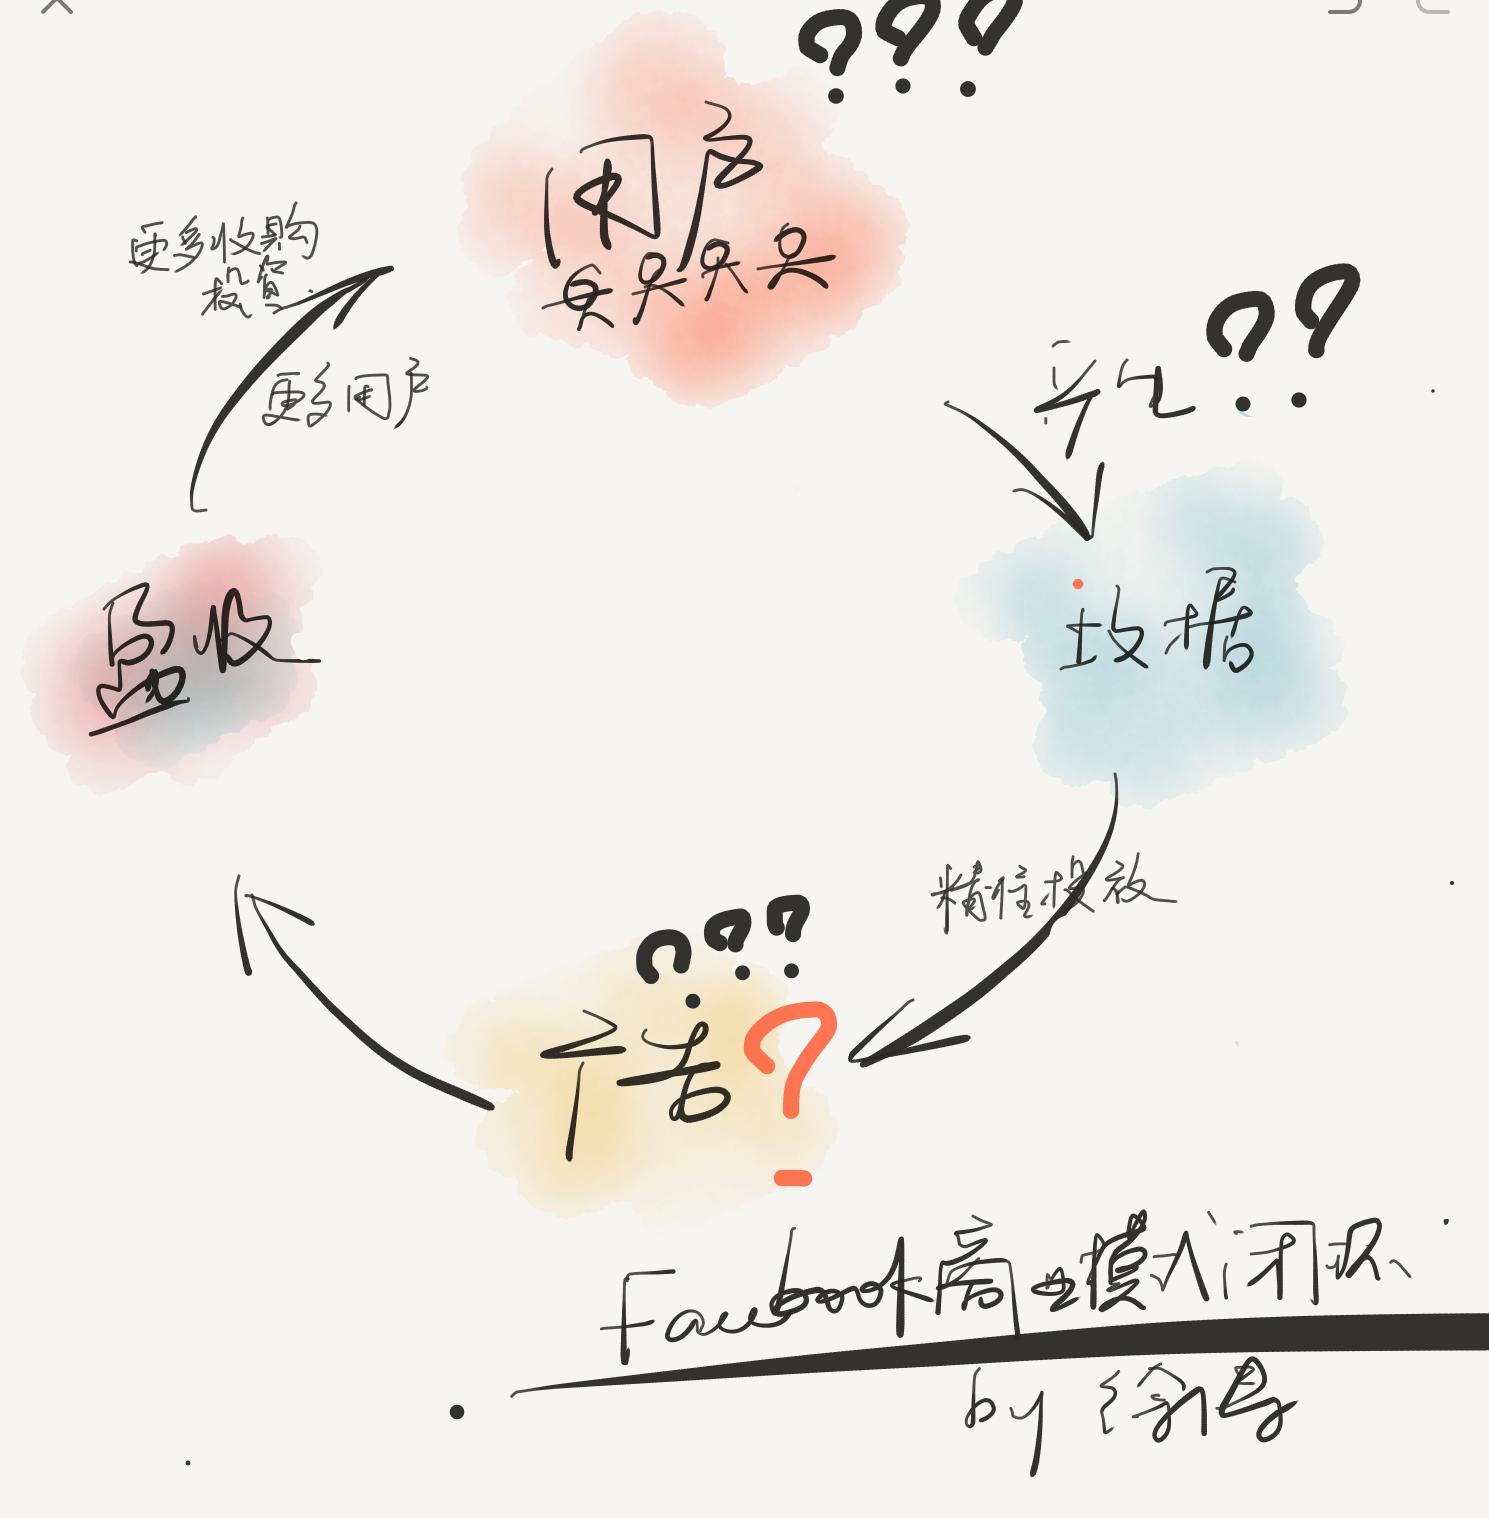 ???
用户
更多收购
投资
更多用户
产生??
数据
盈收
精准投放
???
广告?
Facebook商业模式闭环
by 徐